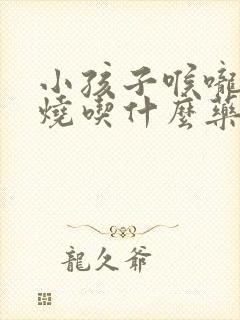 小孩子喉嚨
燒喫什麼藥
龍久爺